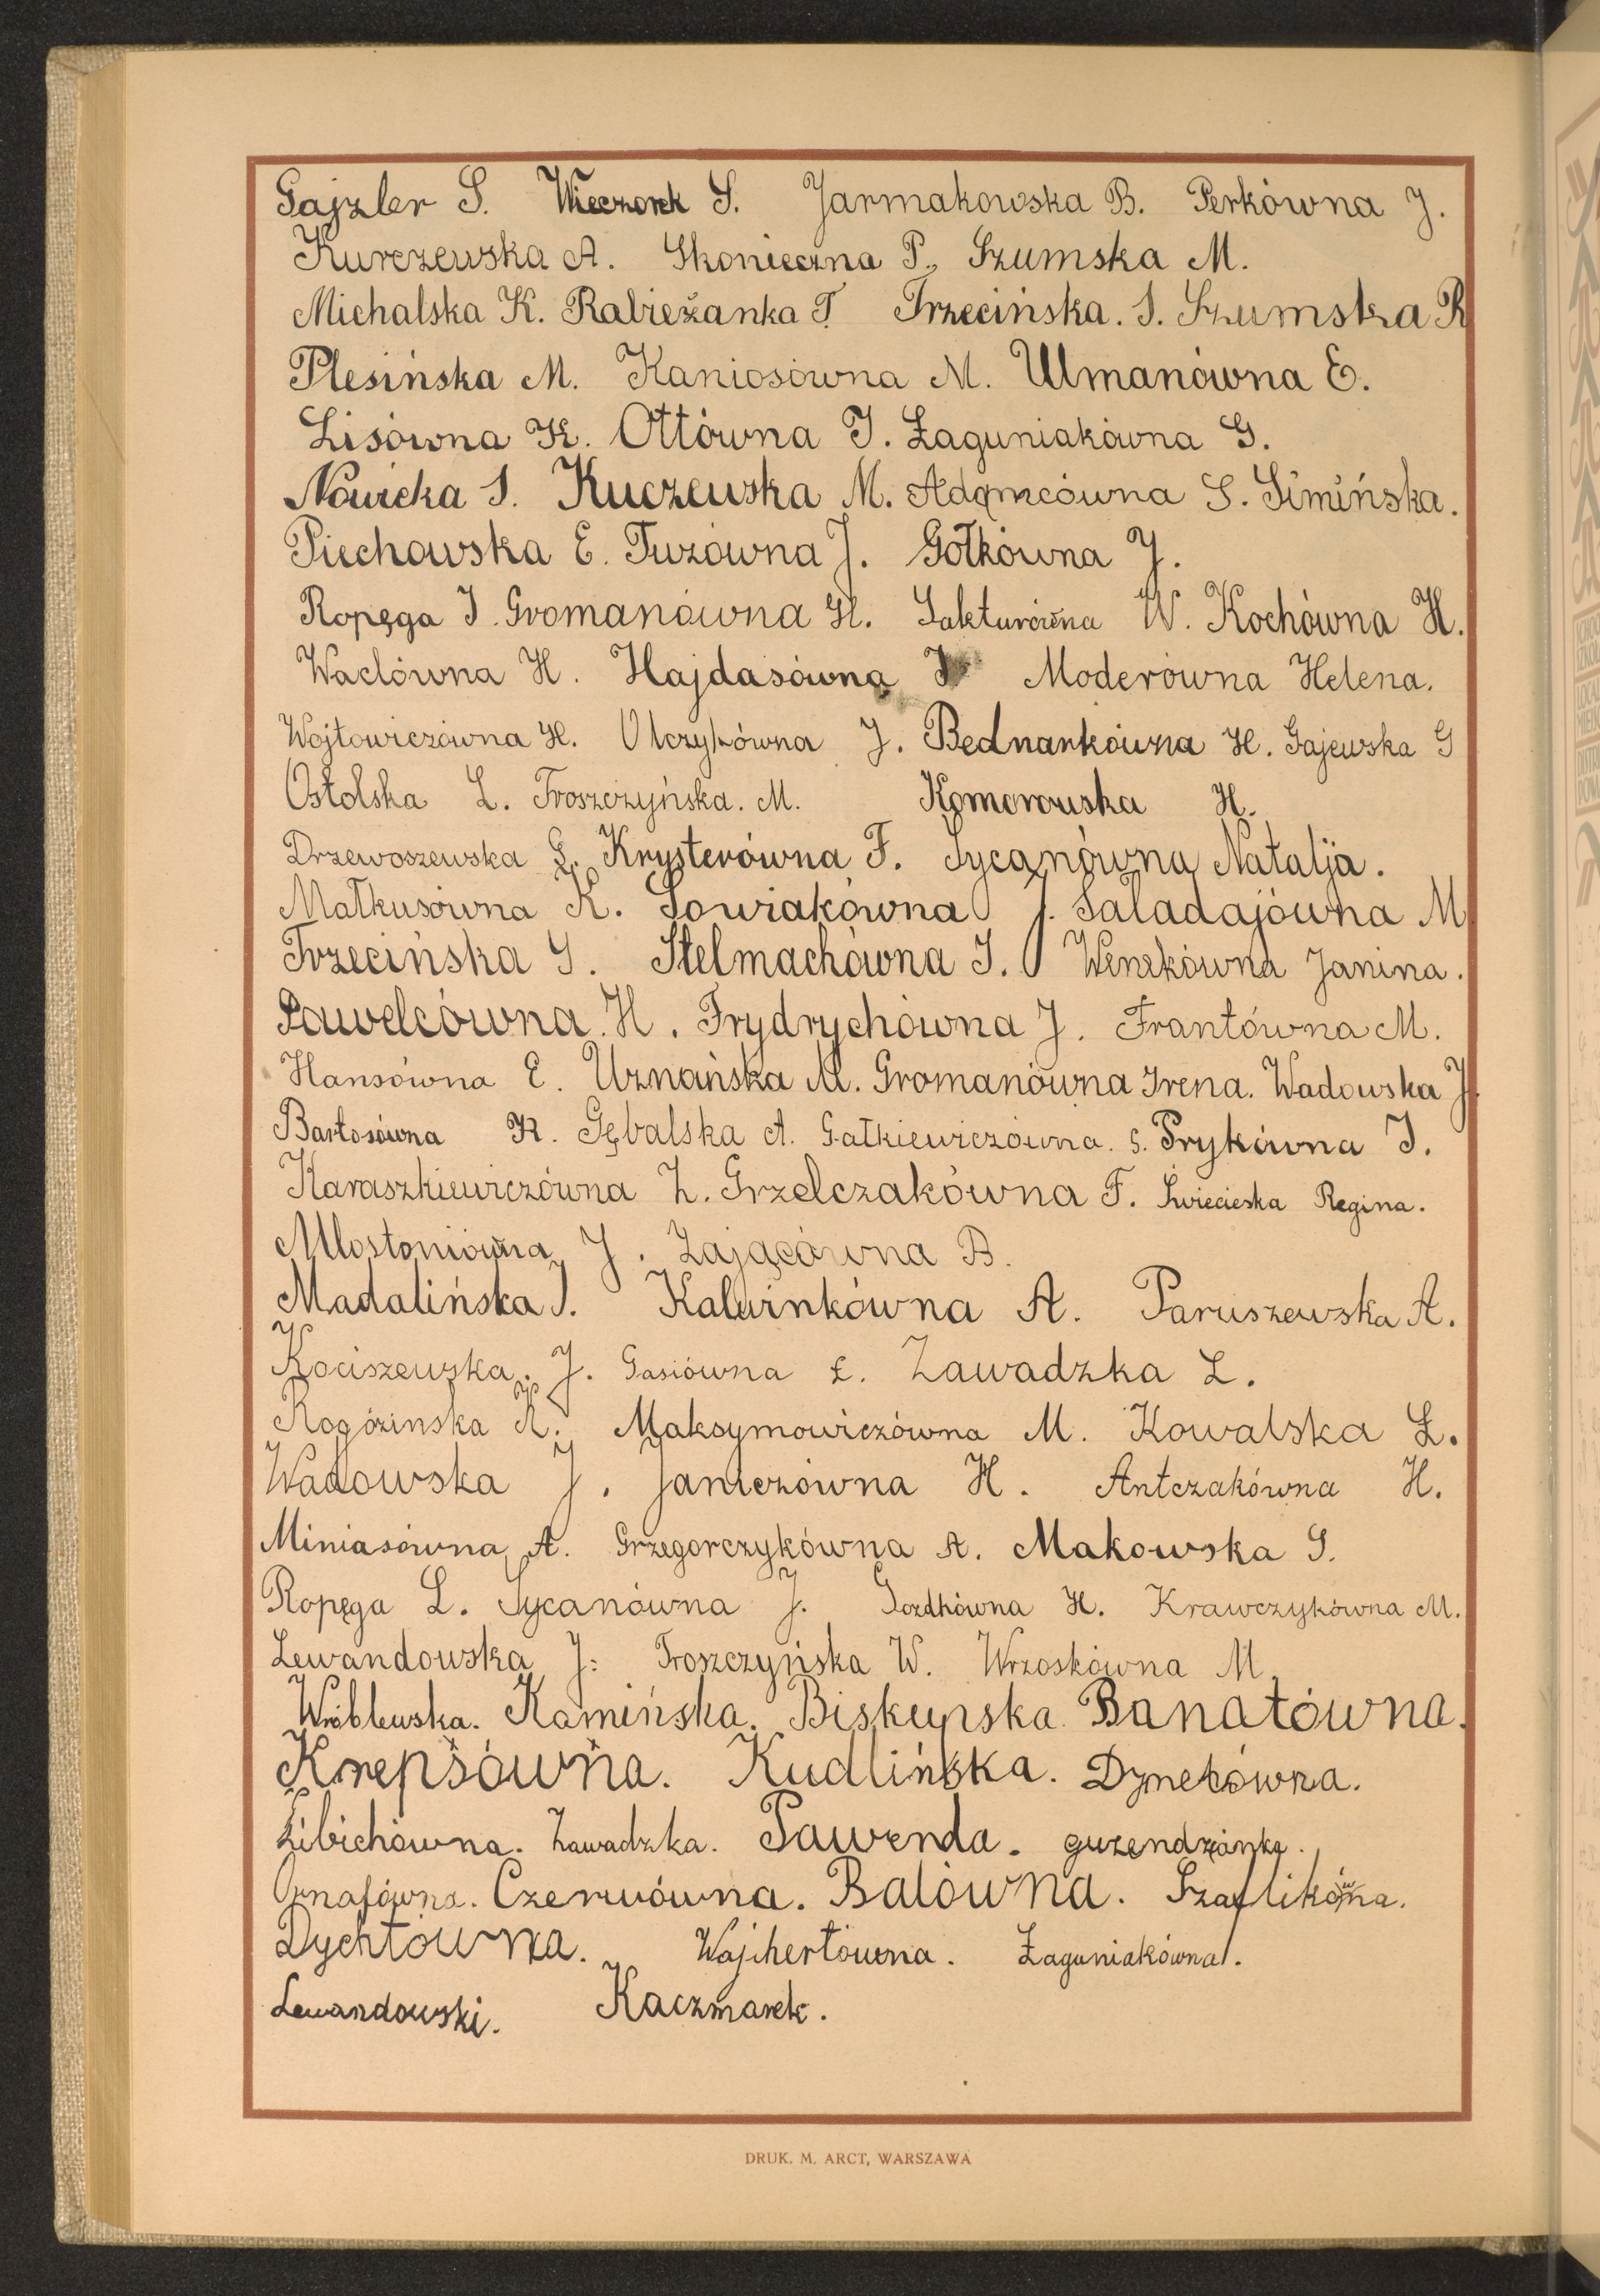 Gajzler S. Wieczorek S. Jarmakowska B. Perkówna J.
Kurczewska A. Skonieczna P. Szumska M.
Michalska K. Rabieżanka T. Trzecińska. S. Szumska R
Plesińska M. Kaniosówna M. Ulmanówna E.
Lisówna K. Ottówna J. Łaguniakówna G.
Nowicka S. Kuczewska M. Adamcówna S. Simińska.
Piechowska E. Tuzówna J. Gołkówna J.
Ropęga J. Gromanówna H. Sakturówna W. Kochówna H.
Waclówna H. Hajdasówna Moderówna Helena.
Wojtowiczówna H. Olczykówna J. Bednarkówna H. Gajewska G
Ostolska L. Troszczyńska. M. Komorowska H.
Drzewoszewska G. Krysterówna F. Sycanówna Natalja.
Małkusówna K. Sowiakówna J. Saladajówna M
Trzecińska S. Stelmachówna J. Wenekówna Janina.
Pawelcówna. H. Frydrychówna J. Frantówna M.
Hansówna E. Uznańska M. Gromanówna Irena. Wadowska J.
Bartosówna K. Gębalska A. Gałkiewiczówna. S. Prykówna J.
Karaszkiewiczówna Z. Grzelczakówna F. Świecieska Regina.
Młostoniówna J. Zającówna B.
Madalińska J. Kalwinkówna A. Paruszewska A.
Kociszewska. J. Gasiówna Ł. Zawadzka L.
Rogózinska K. Maksymowiczówna M. Kowalska Ł.
Wadowska J. Janiczówna H. Antczakówna H.
Miniasówna A. Grzegorczykówna A. Makowska S.
Ropęga L. Sycanówna J. Gozdkówna H. Krawczykówna M.
Lewandowska J: Troszczyńska W. Wrzoskówna M.
Wróblewska. Kamińska. Biskupska. Banatówna.
Krepsówna. Kudlińska. Dymekówna.
Libichówna. Zawadzka. Pawenda. guzendzianka.
Ornafówna. Czerwówna. Balówna. Szaflikówna.
Dychtówna. Wajhertówna. Łaguniakówna.
Lewandowski. Kaczmarek.
DRUK. M. ARCT, WARSZAWA